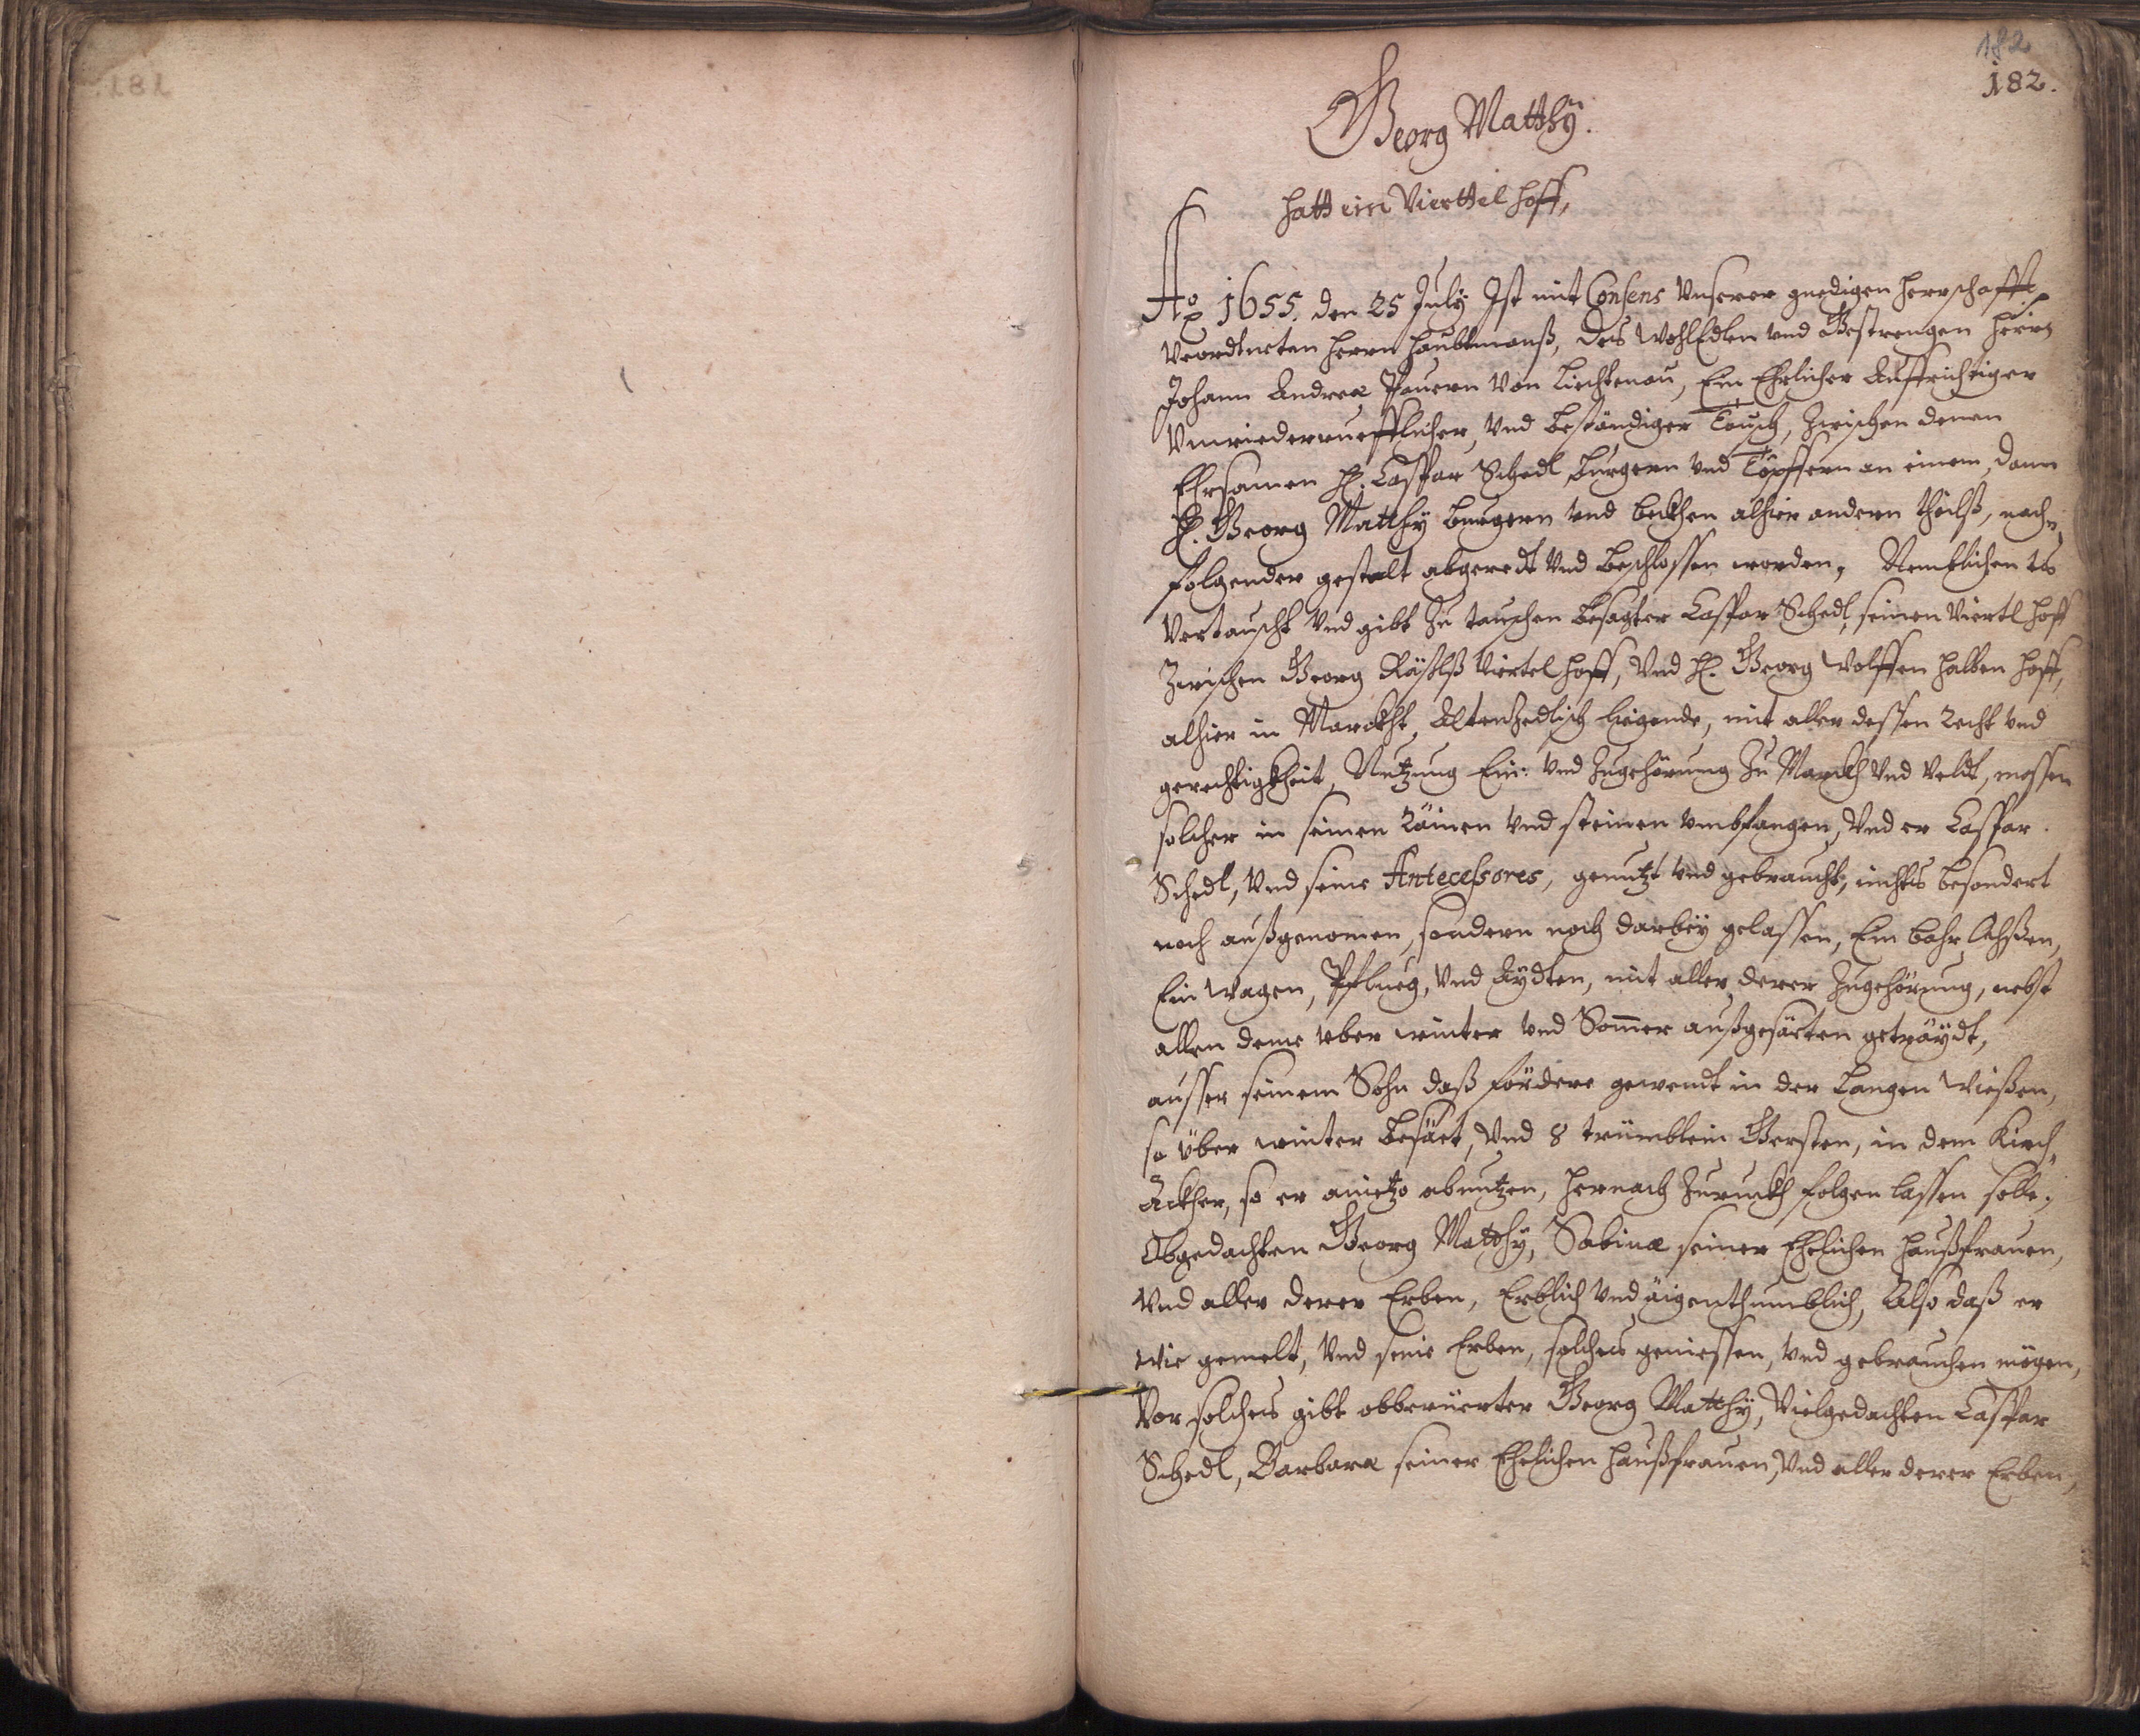 182
182.
Georg Matthÿ.
hatt ein Viertel hoff,
Ao 1655. den 25 July Ist mit Consens Unserer gnedigen herrschafft
Verordtneten herrn Haubtmanß, des WohlEdlen und Gestrengen herrn
Johann Andreæ Pauern von Liechtenau, Ein Ehrlicher Auffrichtiger
Unwiederruefflicher, und beständiger Tausch, Zwischen denen
Ehrsamen H. Caspar Schedl Burgern und Töpffern an einem, dann
H. Georg Matthÿ burgern und beckhen alhier andern theilß, nach„
folgender gestalt abgeredt und beschlossen worden, Nemblichen es
Vertauscht und gibt Zu tauschen besagter Caspar Schedl, seinen Viertl hoff
Zwischen Georg Viertel hoff, Und H. Georg Wolffen halben hoff,
alhier in Marckht Altenzedlisch liegende, mit aller dessen Recht und
gerechtigkheit, Nutzung Ein: und Zugehörung Zu Marckh und Veldt, massen
solcher in seinen Räinen und steinen umbfangen, Und er Caspar
Schedl, Und seine Antecessores, genutzt und gebraucht, nichts besondert
noch außgenomen, sondern noch darbeÿ gelassen, Ein bahr Ochßen,
Ein Wagen, Pflueg, Und Aÿdten, mit aller derer Zugehörung, nebst
allen deme uber winter und Som̅er außgesäeten geträÿdt,
ausser seinem Sohn daß fördere gewendt in der Langen Wießen,
so über winter besäet, Und 8 trümblein Gersten, in dem Kirch„
Äckher, so er anietzo abnutzen, hernach Zuruckh folgen lassen solle,
Obgedachten Georg Matthÿ, Sabinæ seiner Ehelichen haußfrauen,
Und aller derer Erben, Erblich und äigenthumblich, Also daß er
wie gemelt, Und seine Erben, solches geniessen, und gebrauchen mögen,
Vor solches gibt obberüerter Georg Matthÿ, Vielgedachten Caspar
Schedl, Barbaræ seiner Ehelichen haußfrauen, Und aller derer Erben,